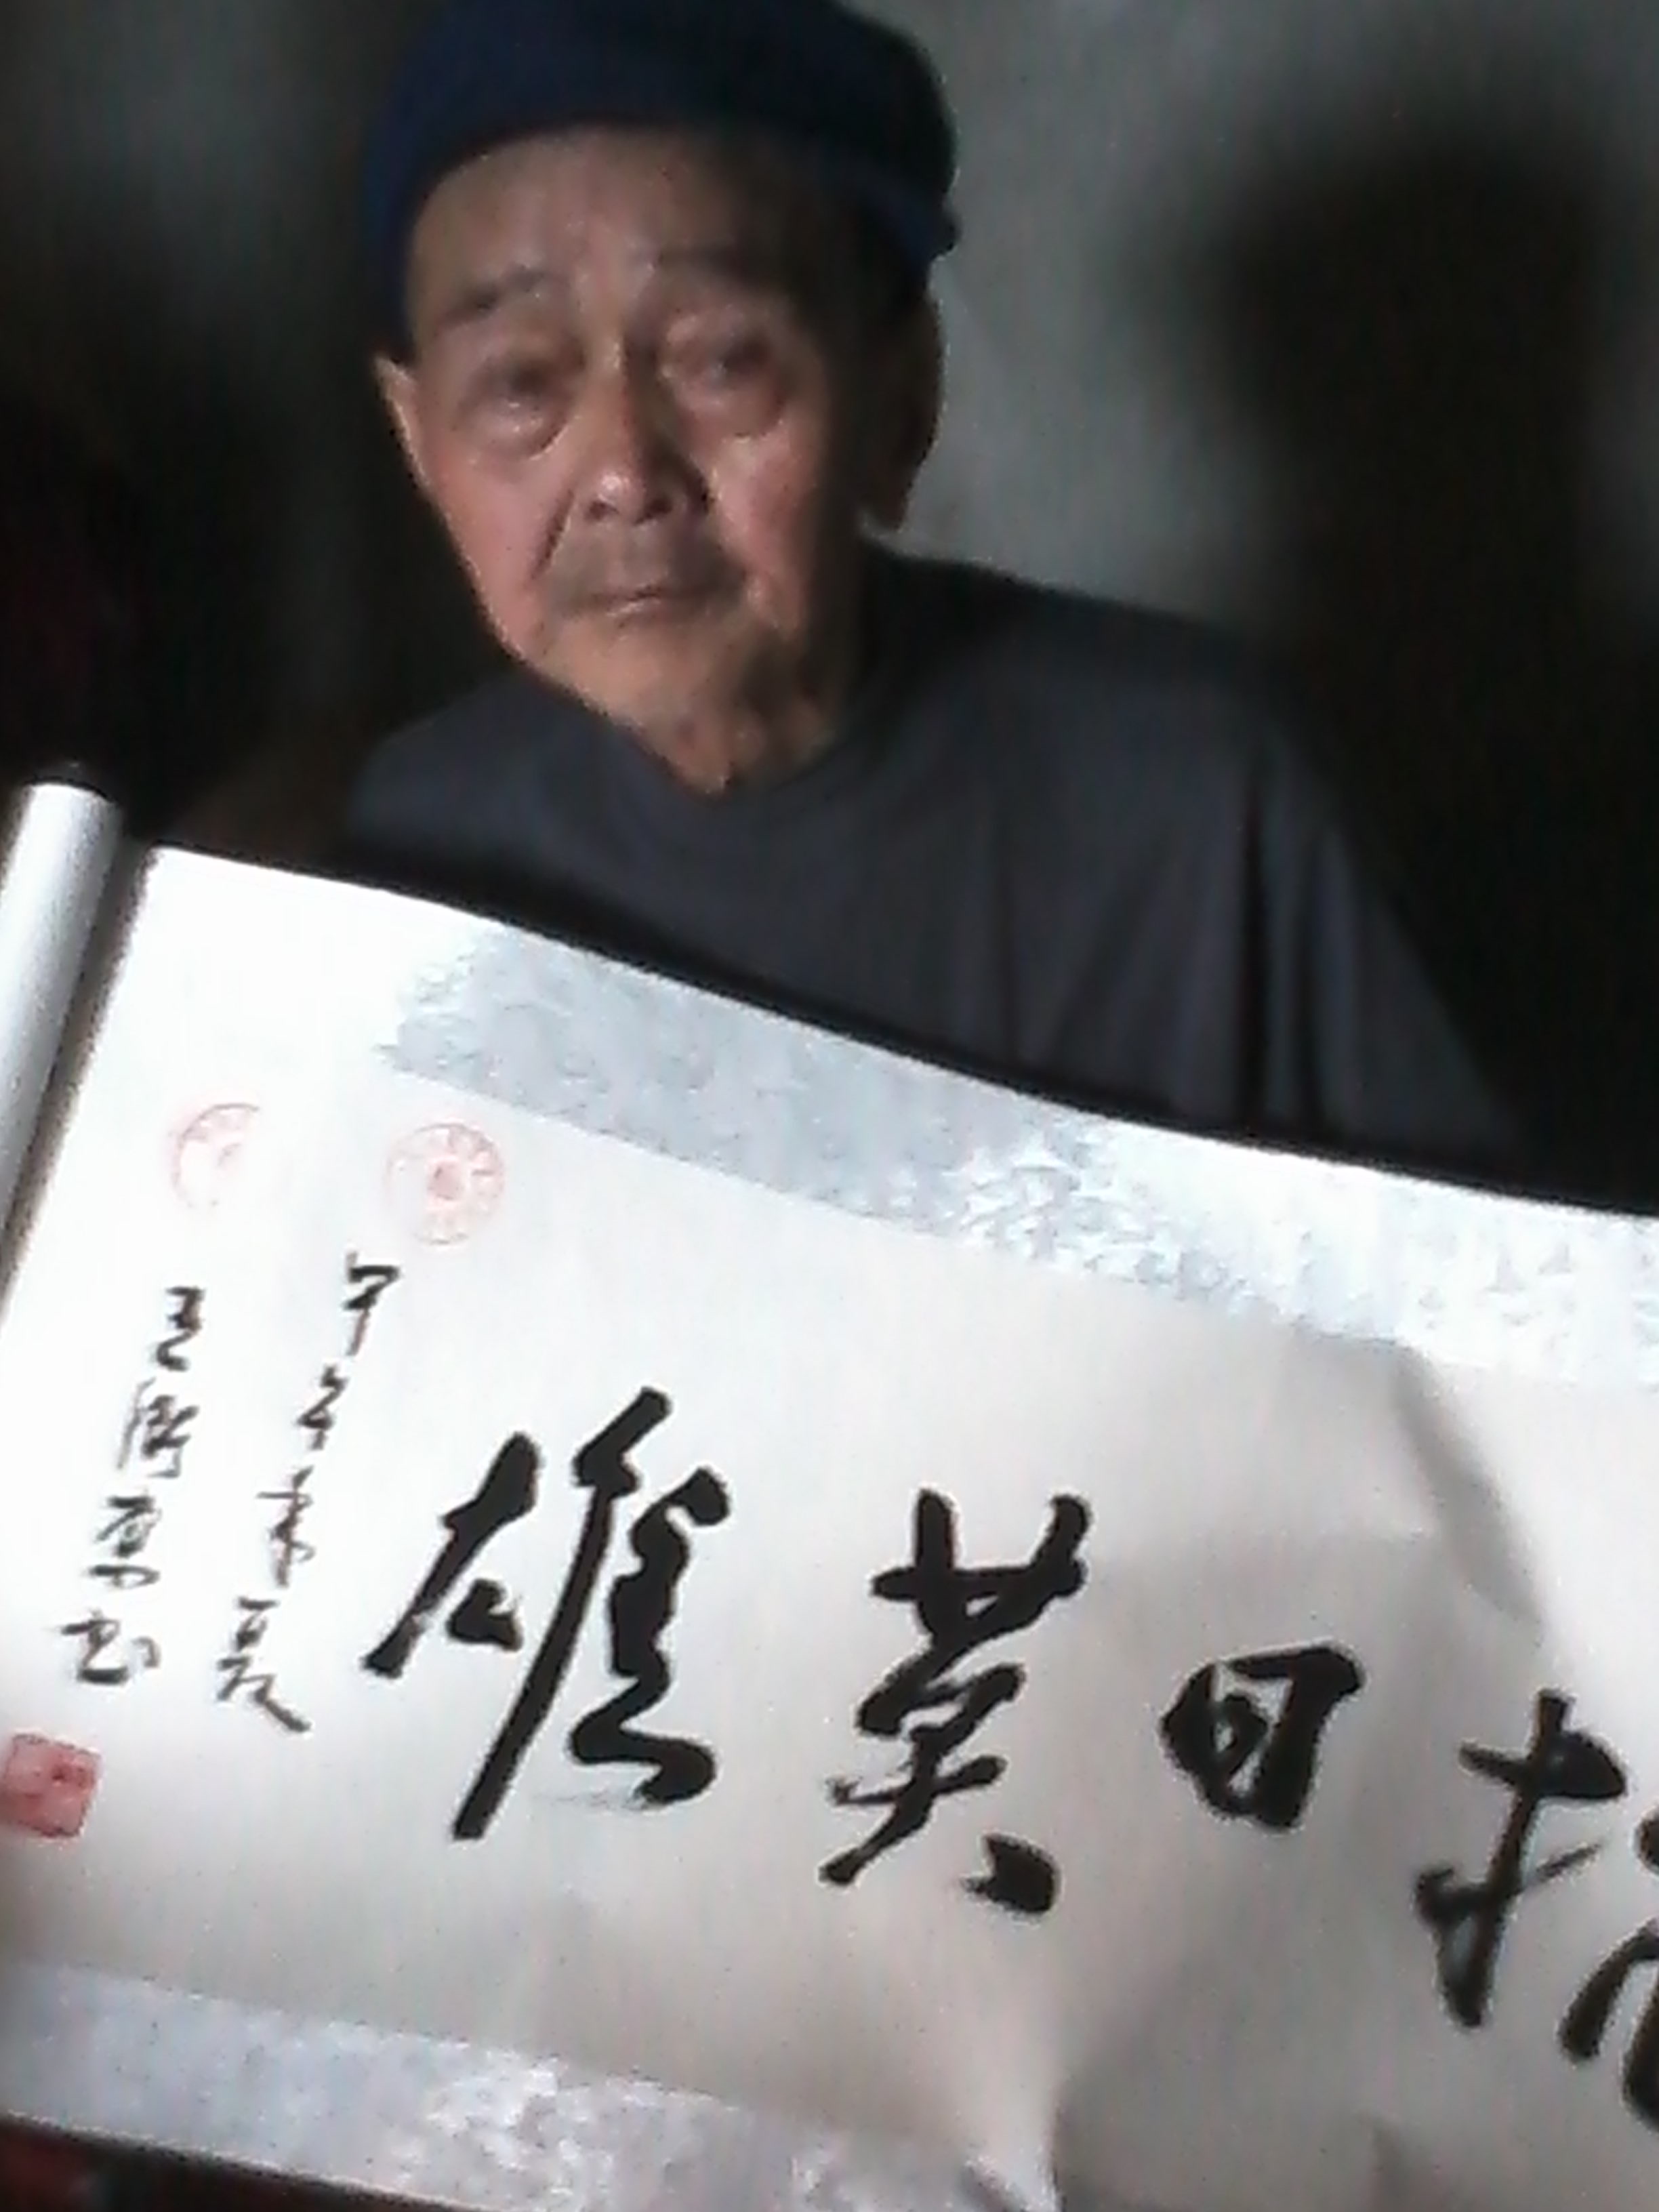 抗日英雄
甲午年夏
王 书